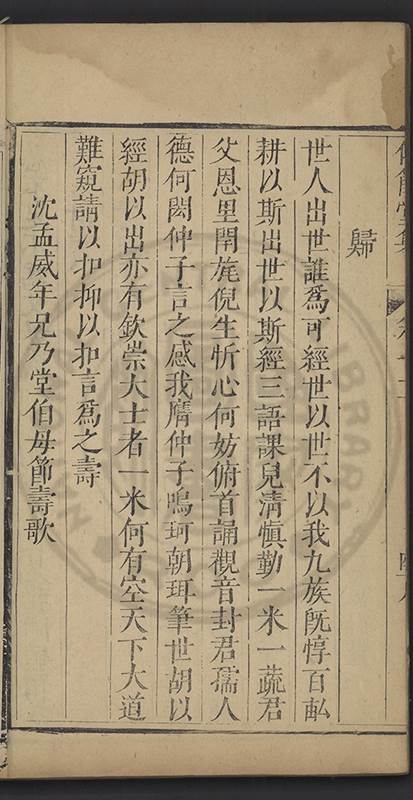 歸
世人出世誰爲可經世以世不以我九族旣惇百畝
耕以斯出世以斯經三語課兒淸愼勤一米一蔬君
父恩里閈旄倪生忻心何妨俯首誦觀音封君孺人
德何閎仲子言之感我膺仲子鳴珂朝珥筆世胡以
經胡以出亦有欽崇大士者一米何有空天下大道
難窺請以扣抑以扣言爲之壽
沈孟威年兄乃堂伯母節壽歌